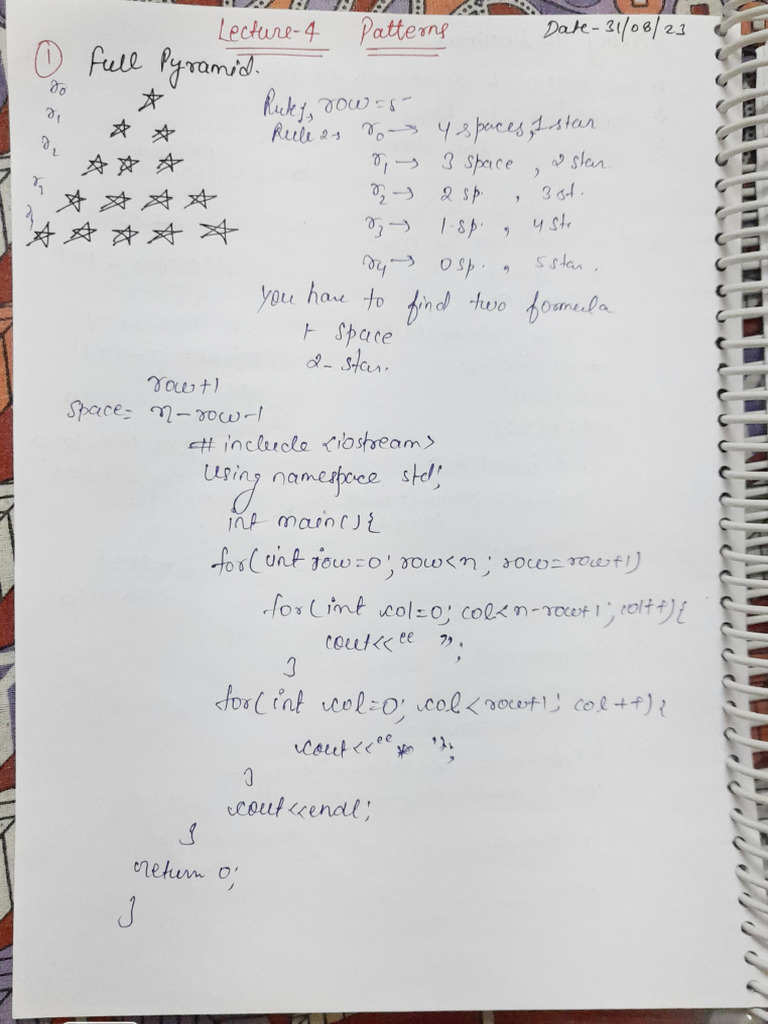 Lecture-4 Patterns Date-31/08/23
① Full Pyramid.
r0
r1
r2
r3
Rule 1, row = 5
Rule 2, r0 → 4 spaces, 1 star
r1 → 3 space , 2 star
r2 → 2 sp. , 3 st.
r3 → 1 sp. , 4 str
r4 → 0 sp. , 5 star.
You have to find two formula
1 space
2- star.
row+1
space = n-row-1
# include <iostream>
using namespace std;
int main(){
for(int row=0; row<n; row=row+1)
for(int col=0; col<n-row+1; col++){
cout<<“ ”;
}
for(int col=0; col<row+1; col++){
cout<<“* ”;
}
cout<<endl;
}
return 0;
}